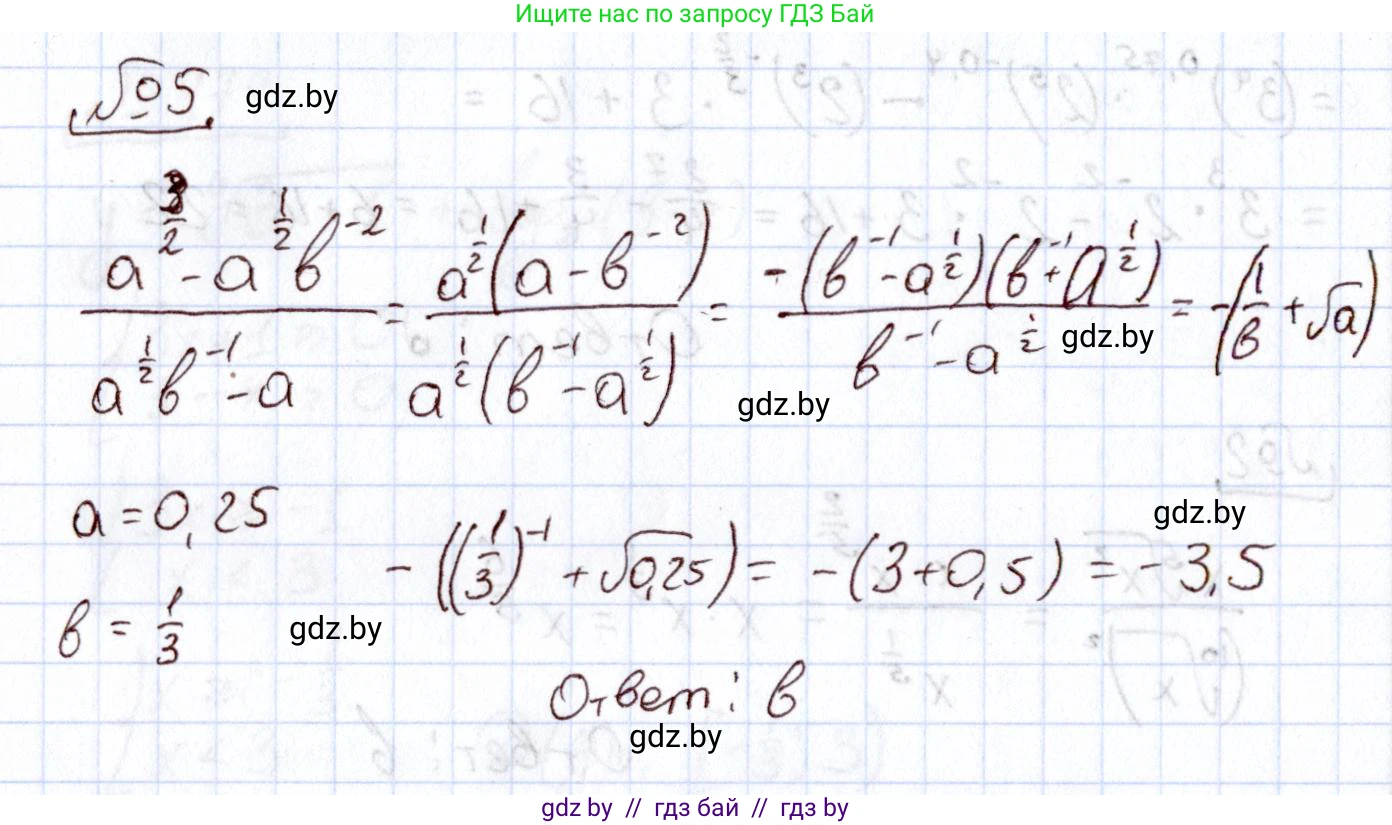 Ищите нас по запросу ГДЗ Бай
№5 gdz.by
(a^(3/2) - a^(1/2)в^(-2)) / (a^(1/2)в^(-1) - a) = (a^(1/2)(a - в^(-2))) / (a^(1/2)(в^(-1) - a^(1/2))) = (-(в^(-1) - a^(1/2))(в^(-1) + a^(1/2))) / (в^(-1) - a^(1/2)) = -(1/в + √a)
gdz.by
gdz.by
a = 0,25
gdz.by
-((1/3)^(-1) + √0,25) = -(3+0,5) = -3,5
в = 1/3
gdz.by
Ответ: в
gdz.by
gdz by // гдз бай // гдз by